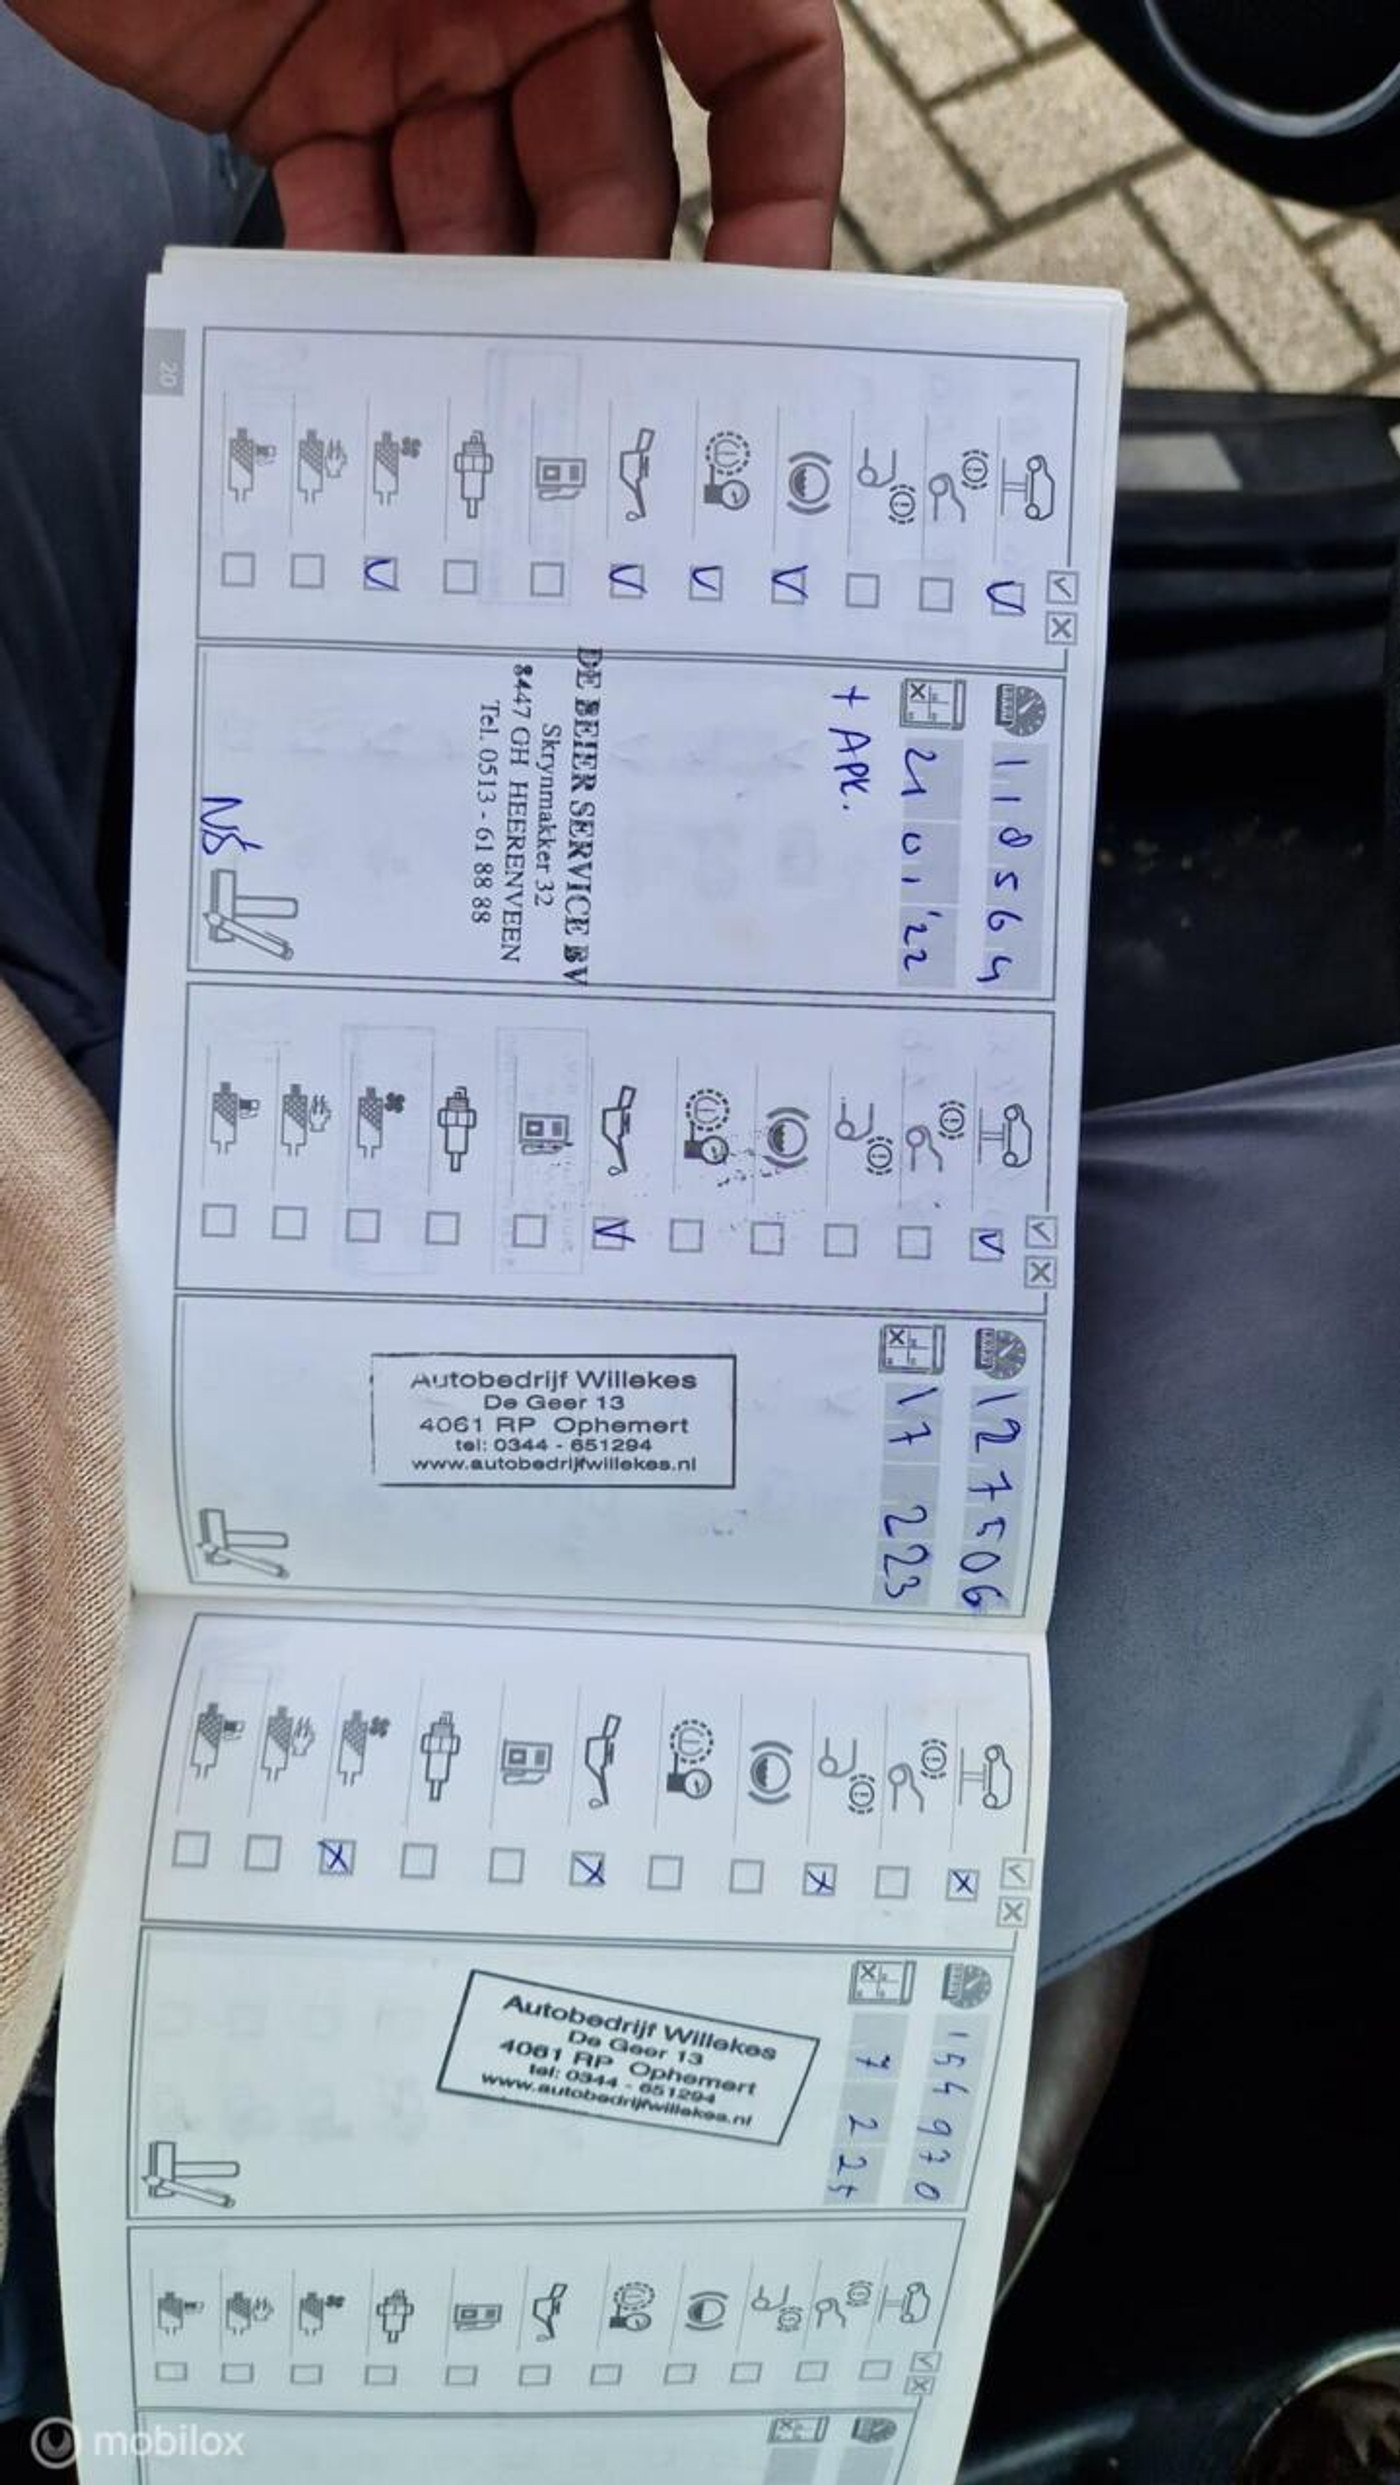 20
118564
21 01 '22
+ APK.
DE BEIER SERVICE BV
Skrynmakker 32
8447 GH HEERENVEEN
Tel. 0513 - 61 88 88
127506
17 2 23
Autobedrijf Willekes
De Geer 13
4061 RP Ophemert
tel: 0344 - 651294
www.autobedrijfwillekes.nl
154970
7 2 25
Autobedrijf Willekes
De Geer 13
4061 RP Ophemert
tel: 0344 - 651294
www.autobedrijfwillekes.nl
mobilox